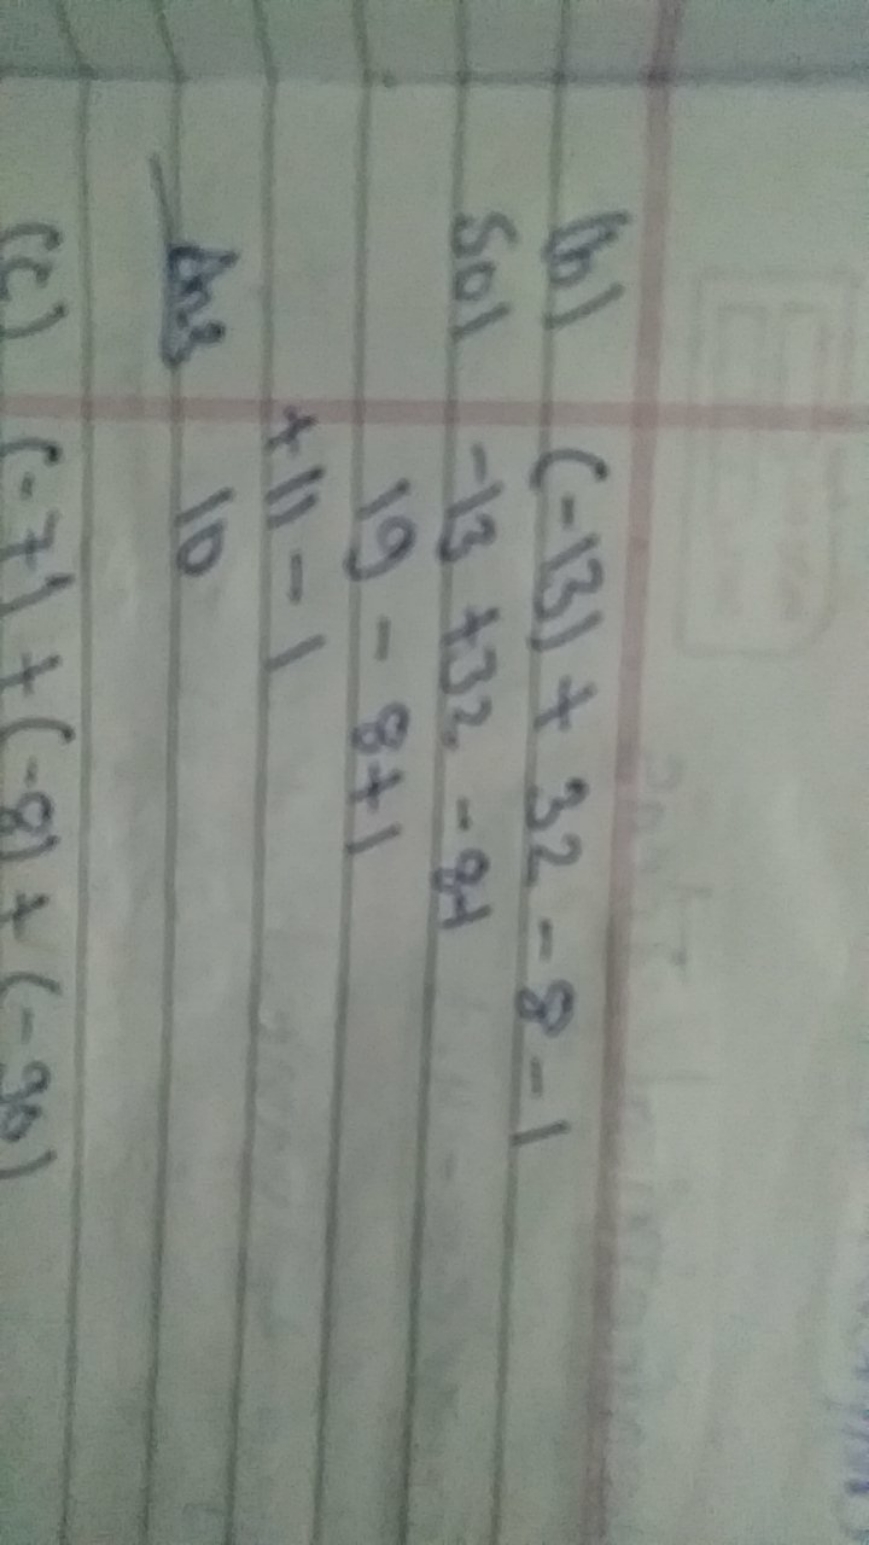 (b) (-13) + 32 - 8 - 1
Sol -13 +32 - 8+1
19 - 8+1
+11 - 1
Ans 10
(c) (-7) + (-8) + (-36)